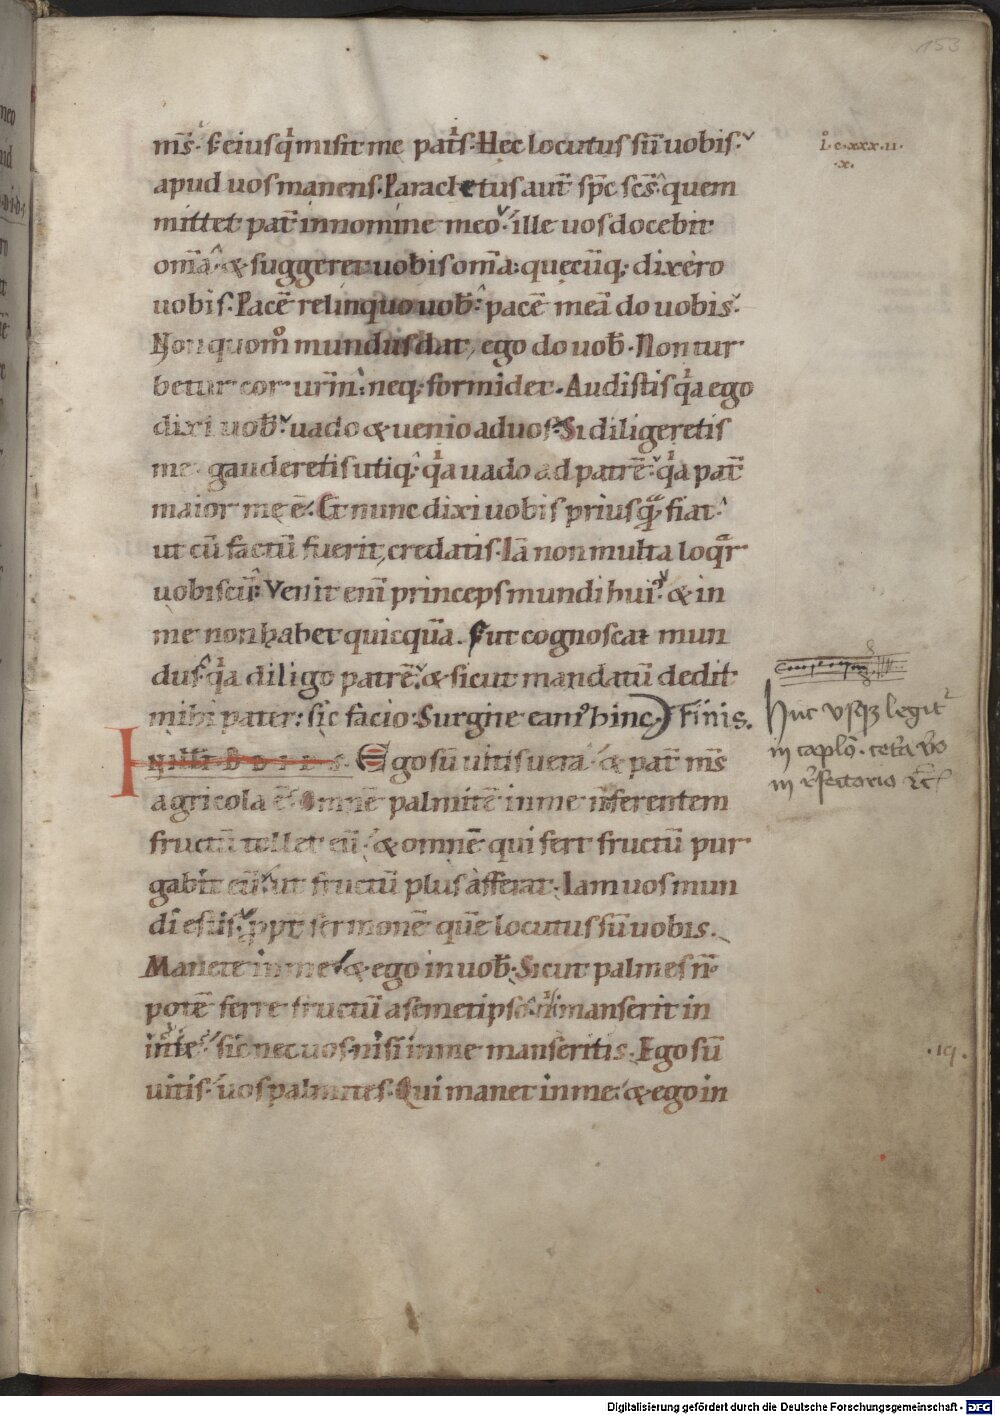 153
ms̄. s; eiusq̇ misit me pat̄s. Hec locutus sū uobis.
i. c. xxx. ii.
.x.
apud uos manens. Paracletus aut̄ sp̄c sc̄s quem
mittet pat̄ innomine meo. ille uos docebit
om̄a. & suggeret uobis om̄a: quecūq; dixero
uobis. Pacē relinquo uob̄. pacē meā do uobis.
Non quom̊ mundus dat, ego do uob̄. Non tur
betur cor ur̄m: neq; formidet. Audistis q̇a ego
dixi uob̄. uado & uenio aduos. Si diligeretis
me. gauderetis utiq; q̇a uado ad patrē. q̇a pat̄
maior me ē. Et nunc dixi uobis priusqᷓ fiat.
ut cū factū fuerit, credatis. Iā non multa loqᷓr
uobiscū. Venit enī princeps mundi hui᾽. & in
me non habet quicquā. Sut cognoscat mun
dus. q̇a diligo patrē. & sicut mandatū dedit
mihi pater: sic facio. Surgite eam᾽ hinc. Finis.
Huc usq; legit᷑
in caplo. cetā v̄o
in r̄fectorio &c̄
IN ILLI. D D I I S. Ego sū uitis uera. & pat̄ ms̄
agricola ē. Omnē palmitē inme n̄ ferentem
fructū tollet eū. & omnē qui fert fructū pur
gabit eū. ut fructū plus afferat. Iam uos mun
di estis. ppt̄ sermonē quē locutus sū uobis.
Manete inme. & ego in uob̄. Sicut palmes n̄
potē ferre fructū asemetipso. n̄ manserit in
uite. sic nec uos. nisi inme manseritis. Ego sū
.iq.
uitis. uos palmites. Qui manet inme. & ego in
Digitalisierung gefördert durch die Deutsche Forschungsgemeinschaft - DFG